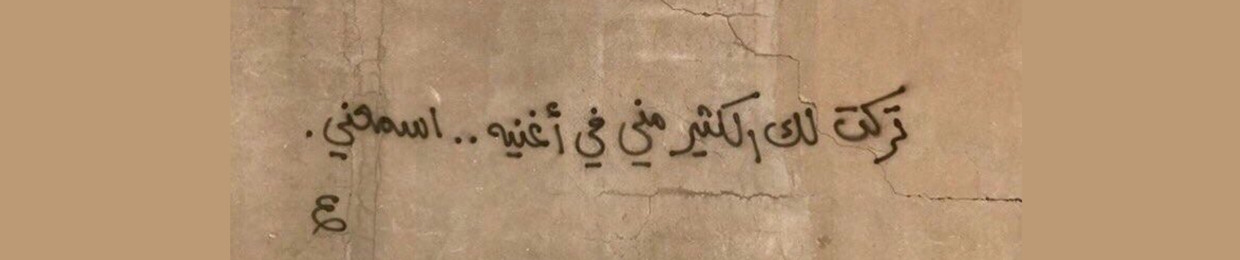 تركت لك الكثير مني في أغنيه .. اسمعني .
ع